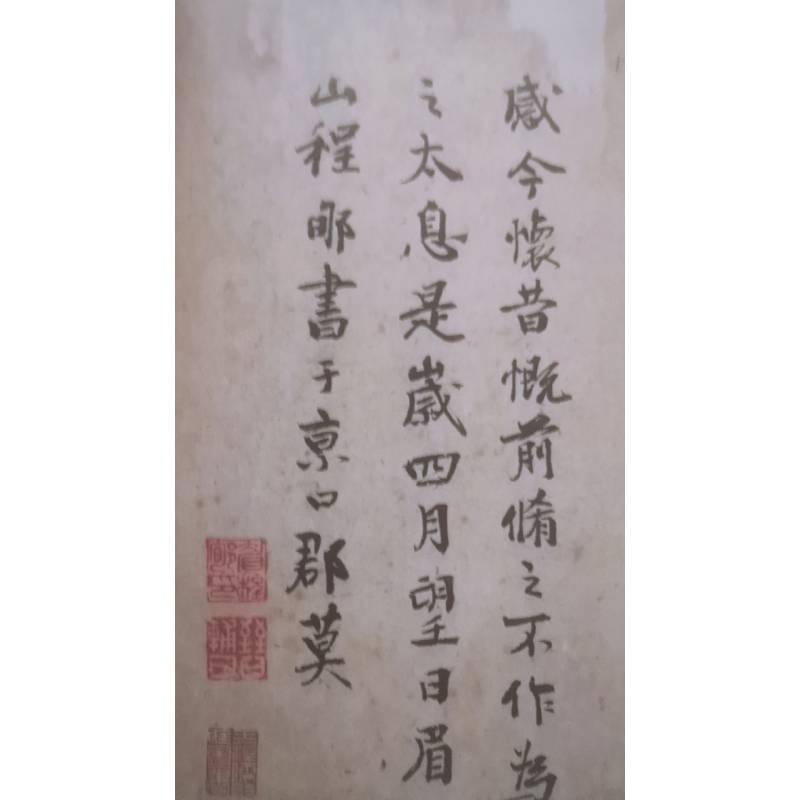 感今懷昔慨前脩之不作為
之太息是歲四月望日眉
山程郇書于亰口郡莫